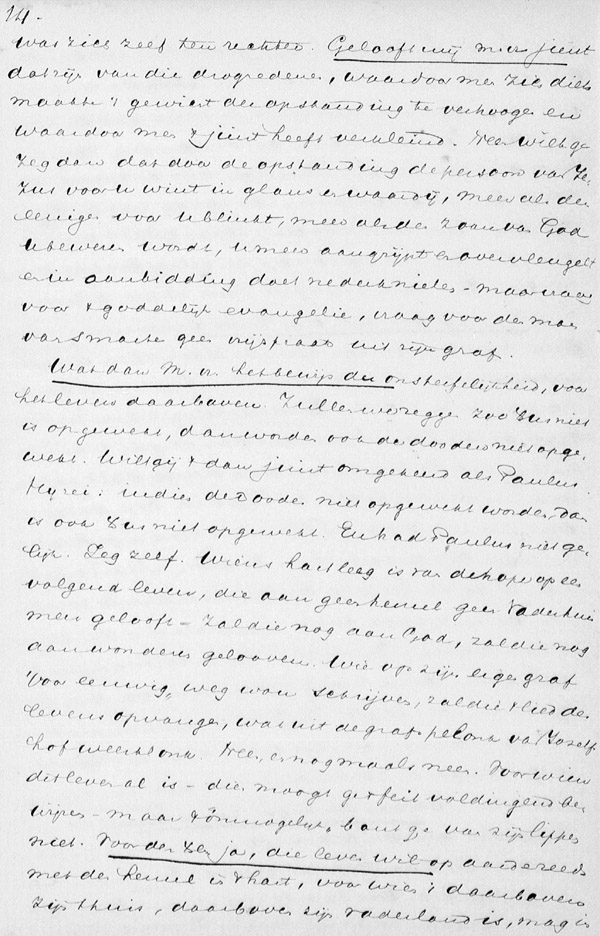 14.
was zich zelf ten rechter. Gelooft mij m. vr. juist
dat zijn van die drogredenen, waardoor men zich diets
maakte 't gewicht der opstanding te verhoogen en
waardoor men 't juist heeft verkleind. Neen wilt ge
zeg dan dat door de opstanding de persoon van Je-
zus voor u wint in glans en waardij, meer als de
eenige voor u blinkt, meer als de zoon van God
u bewezen wordt, u meer aangrijpt en overvleugelt
en in aanbidding doet nederknielen - maar vraag
voor 't goddelijk evangelie, vraag voor den man
van smarte geen vrijspraak uit zijn graf.
Wat dan m. vr. het bewijs der onsterfelijkheid, voor
het leven daarboven. Zullen we zeggen zoo Jezus niet
is opgewekt, dan worden ook de dooden niet opge-
wekt. Wilt gij 't dan juist omgekeerd als Paulus
: indien de Dooden niet opgewekt worden, dan
is ook Jezus niet opgewekt. En had Paulus niet ge-
lijk. Zeg zelf. Wiens hart leeg is van de hope op een
volgend leven, die aan geen hemel geen Vaderhuis
meer gelooft - zal die nog aan God, zal die nog
aan wonderen gelooven. Wie op zijn eigen graf
"voor eeuwig weg" wou schrijven, zal die 't lied des
levens opvangen, wat uit de grafspelonk van Jozefs
hof weerklonk. Neen, en nogmaals neen. Voor wien
dit leven al is - dien moogt ge 't feit voldingend be-
wijzen - maar 't onmogelijk, bant ge van zijn lippen
niet. Voor den ja, die leven wil op aarde reeds
met den hemel in 't hart, voor wien 't daarboven
zijn thuis, daarboven zijn vaderland is, mag in